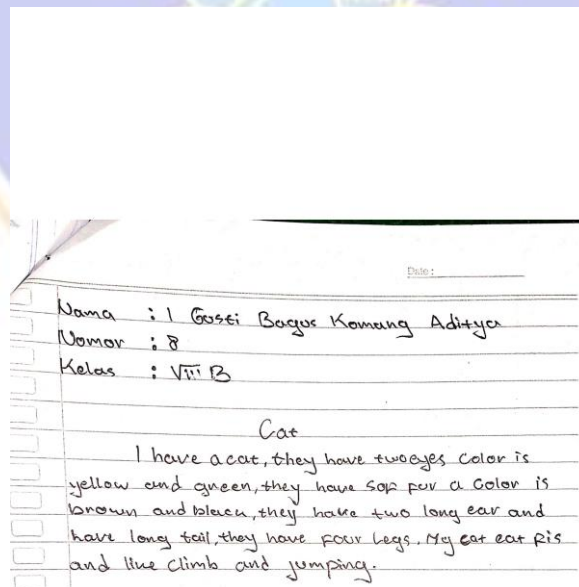 Date:
Nama : I Gusti Bagus Komang Aditya
Nomor : 8
Kelas : VIII B
Cat
I have a cat, they have two eyes color is
yellow and green, they have sof fur a color is
brown and black, they have two long ear and
have long tail, they have four legs, My cat eat fis
and like climb and jumping.